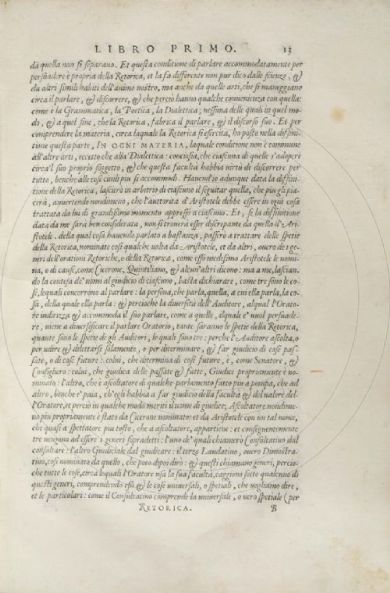 LIBRO PRIMO. 13
da quella non si separano. Et questa conditione di parlare accommodatamente per
persuadere è propria della Retorica, et la fa differente non pur dico dalle scienze, &
da altri simili habiti dell'animo nostro, ma anche da quelle arti, che si maneggiano
circa il parlare, & discorrere, & che perciò hanno qualche conuenienza con quella:
come è la Grammatica, la Poetica, la Dialetica; nessuna delle quali in quel mo-
do, & a quel fine, che la Retorica, fabrica il parlare, & il discorso suo. Et per
comprendere la materia, circa laquale la Retorica si essercita, hà posto nella diffini-
tione questa parte, IN OGNI MATERIA, laquale conditione non è commune
all'altre arti, eccetto che alla Dialettica: conciosia, che ciascuna di quelle s'adopere
circa'l suo proprio soggetto, & che questa facultà habbia virtù di discorrere per
tutto, benche alle cose ciuili piu si accommodi. Hauendo adunque data la diffini-
tione della Retorica, lascierò in arbitrio di ciascuno il seguitar quella, che piu gli pia-
cerà, auuertendo nondimeno, che l'auttorità d'Aristotele debbe essere in ogni cosa
trattata da lui di grandissimo momento appresso a ciascuno. Et, se la diffinitione
data da me sarà ben considerata, non si trouerà esser discrepante da quella d'Ari-
stotele. della qual cosa hauendo parlato a bastanza, passerò a trattare delle spetie
della Retorica, nominate così qualche volta da Aristotele, et da altri, ouero de i ge-
neri dell'orationi Retoriche, o della Retorica, come esso medesimo Aristotele le nomi-
na, o di cause, come Cicerone, Quintiliano, & alcun'altri dicono: ma a me, lascian-
do la contesa de' nomi al giudicio di ciascuno, basta dichiarare, come tre sono le co-
se, le quali concorrono al parlare: la persona, che parla, quella, a cui essa parla, la co-
sa, della quale ella parla: & perciochè la diuersità dell'Auditore, al qual l'Orato-
re indrizza & accommoda il suo parlare, come a quelle, il quale e' vuol persuade-
re, viene a diuersificare il parlare Oratorio, tante saranno le spetie della Retorica,
quante sono le spetie de gli Auditori, le quali sono tre: perche l'Auditore ascolta, o
per udire & dilettarsi solamente, o per determinare, & far giudicio di cose pas-
sate, o di cose future: colui, che determina di cose future, è, come Senatore, &
Consigliero: colui, che giudica delle passate & fatte, Giudice propriamente è no-
minato: l'altro, che è ascoltatore di qualche parlamento fatto piu a pompa, che ad
altro, benche e' paia, ch'egli habbia a far giudicio della facultà & del valore del-
l'Oratore, et perciò in qualche modo meriti il nome di giudice, Ascoltatore nondime-
no piu propriamente è stato da Cicerone nominato: et da Aristotele con tal nome,
che quasi a spettatore piu tosto, che a ascoltatore, appartiene: et conseguentemente
tre vengono ad essere i generi sopradetti: l'uno de' quali chiamerò Consultatiuo dal
consultare: l'altro Giudiciale dal giudicare: il terzo Laudatiuo, ouero Dimostra-
tiuo, così nominato da quello, che poco dipoi dirò: & questi chiamano generi, percio-
che tutte le cose, circa le quali l'Oratore usa la sua facultà, caggiono sotto qualcuno di
questi generi, comprendendo essi & le cose uniuersali, o spetiali, che vogliamo dire,
et le particolari: come il Consultatiuo comprende la uniuersale, o uero spetiale (per
RETORICA. B